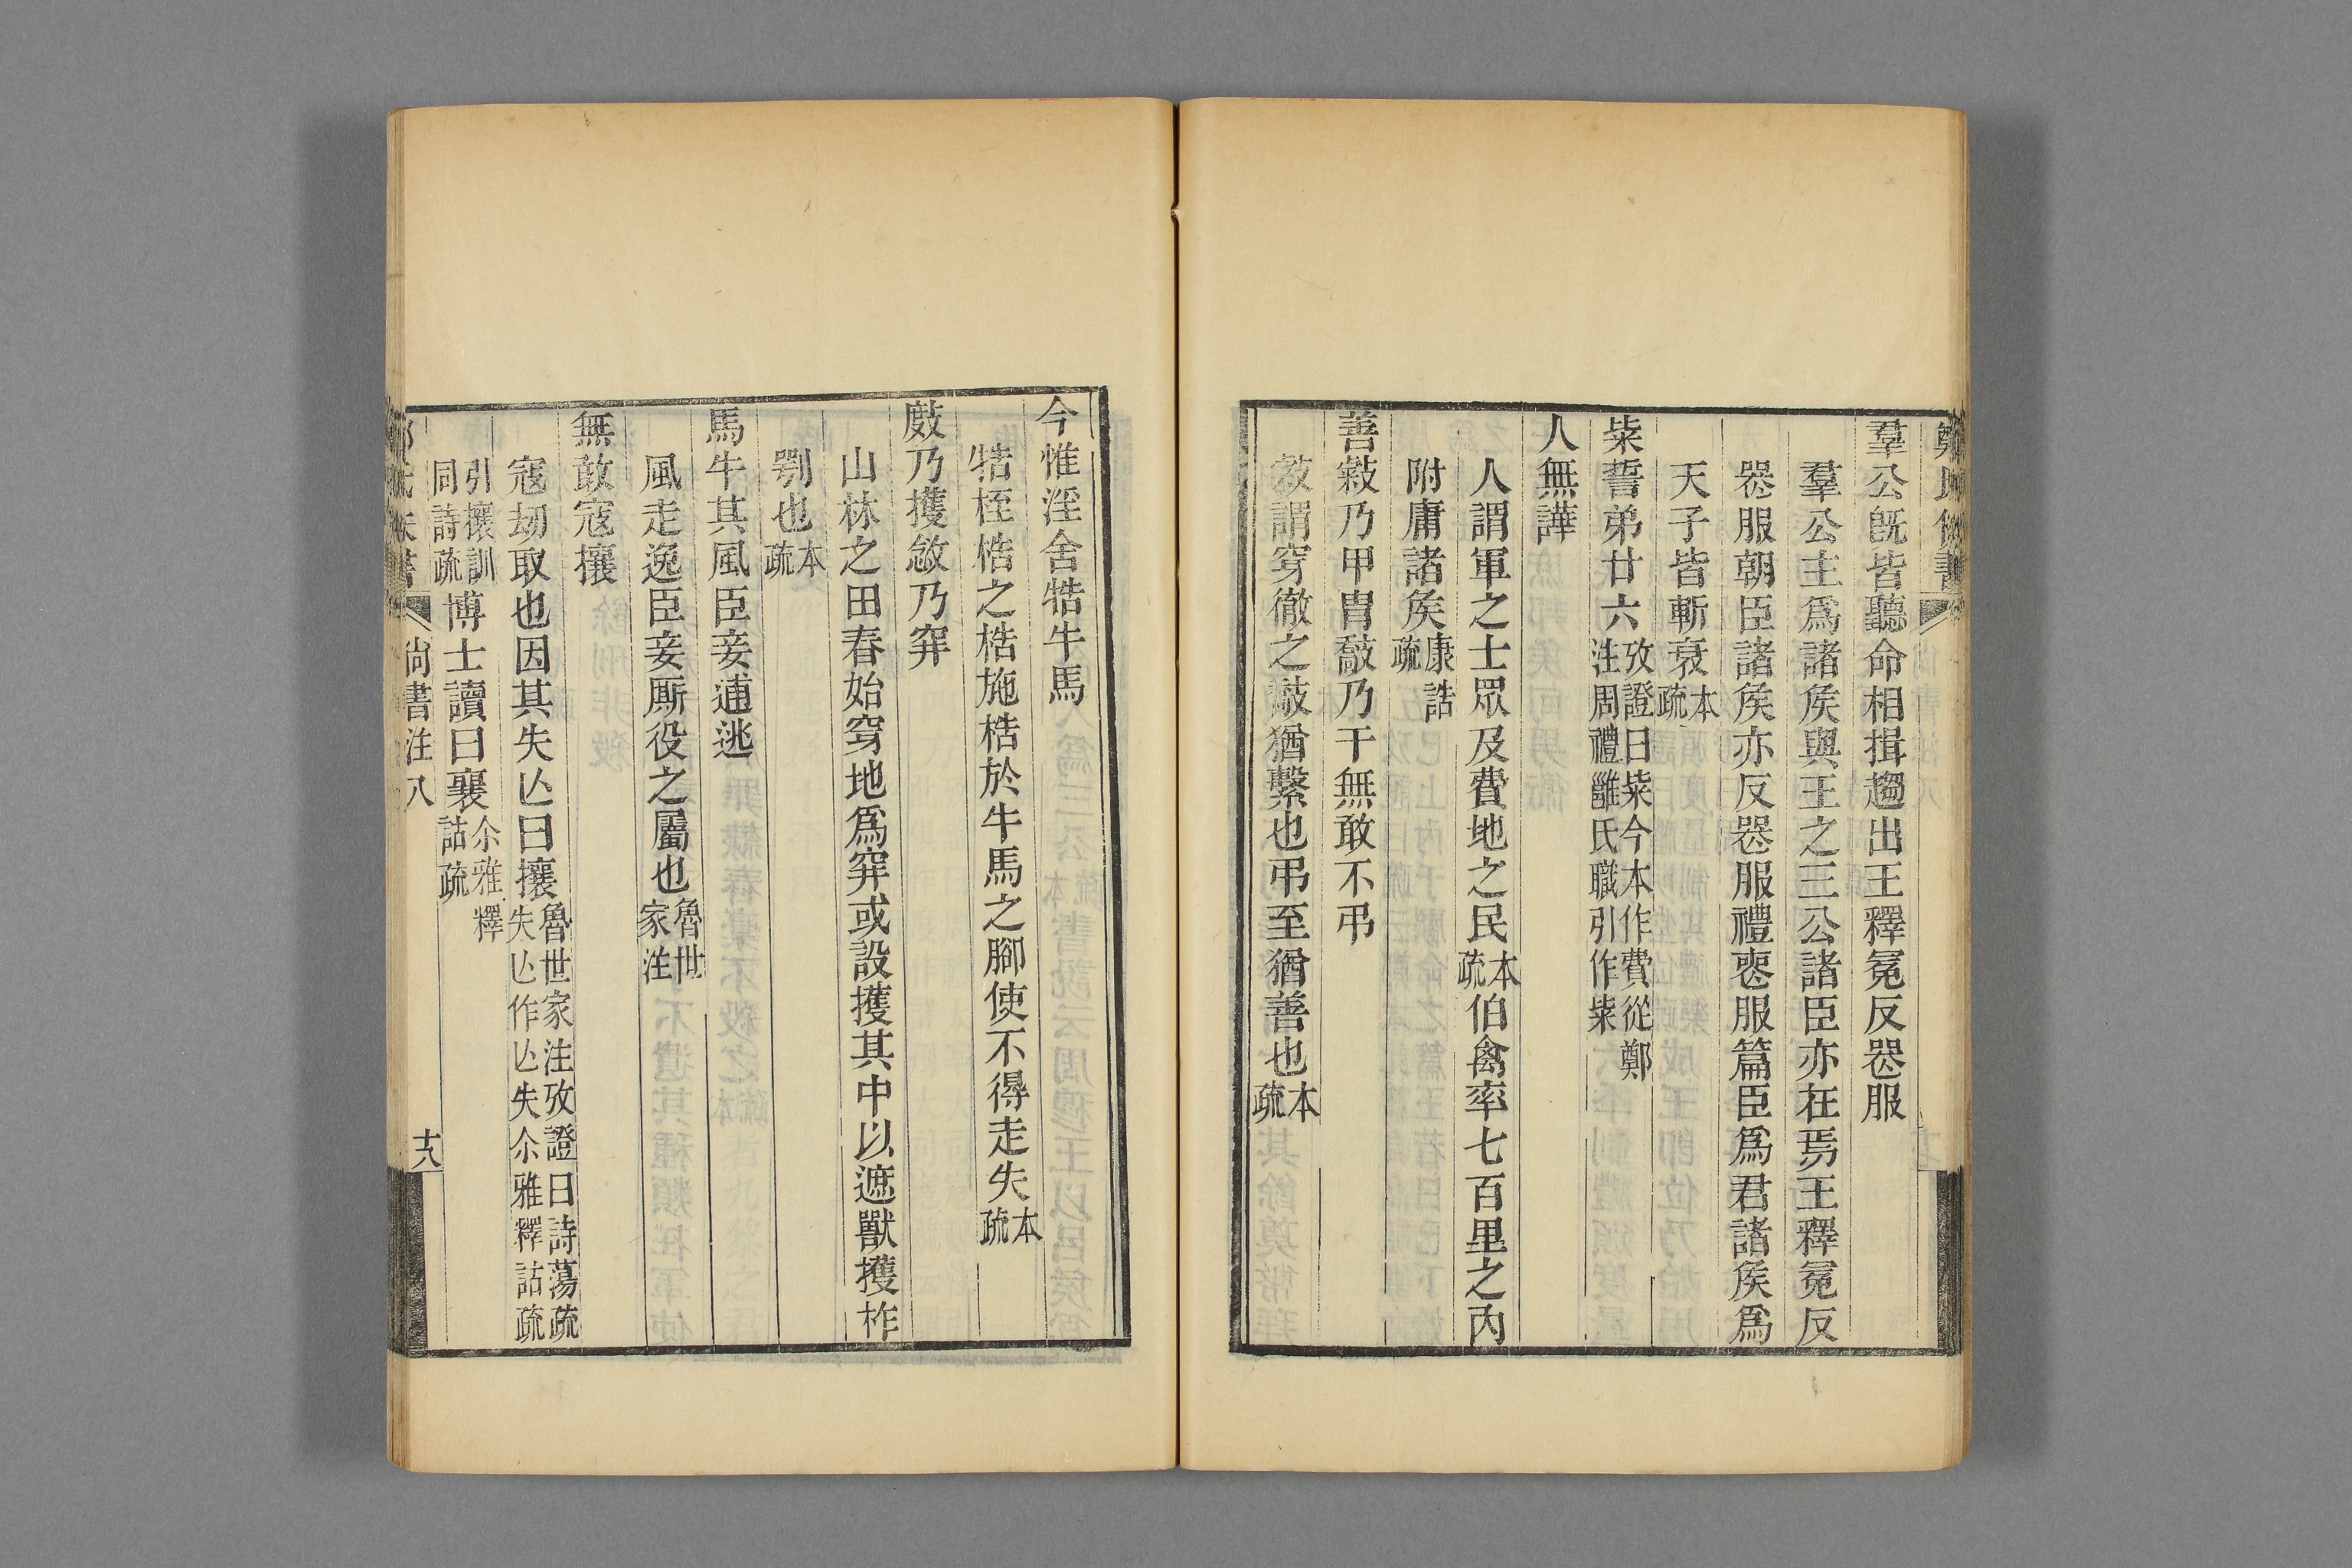 鄭氏佚書
羣公旣皆聽命相揖趨出王釋冕反喪服
羣公主爲諸矦與王之三公諸臣亦在焉王釋冕反
喪服朝臣諸矦亦反喪服禮喪服篇臣爲君諸矦爲
天子皆斬衰本疏
粊誓弟廿六攷證曰粊今本作費從鄭注周禮雝氏職引作粊
人無譁
人謂軍之士眾及費地之民本疏伯禽率七百里之內
附庸諸矦康誥疏
善敹乃甲冑敿乃干無敢不弔
敹謂穿徹之敿猶繫也弔至猶善也本疏
今惟淫舍牿牛馬
牿桎梏之梏施梏於牛馬之腳使不得走失本疏
敷乃擭敜乃穽
山林之田春始穿地爲穽或設擭其中以遮獸擭柞
剹也本疏
馬牛其風臣妾逋逃
風走逸臣妾厮役之屬也魯世家注
無敢寇攘
寇劫取也因其失亾曰攘魯世家注攷證曰詩蕩疏失亾作亾失尒雅釋詁疏
引攘訓同詩疏博士讀曰襄尒雅釋詁疏
尙書注八
十八